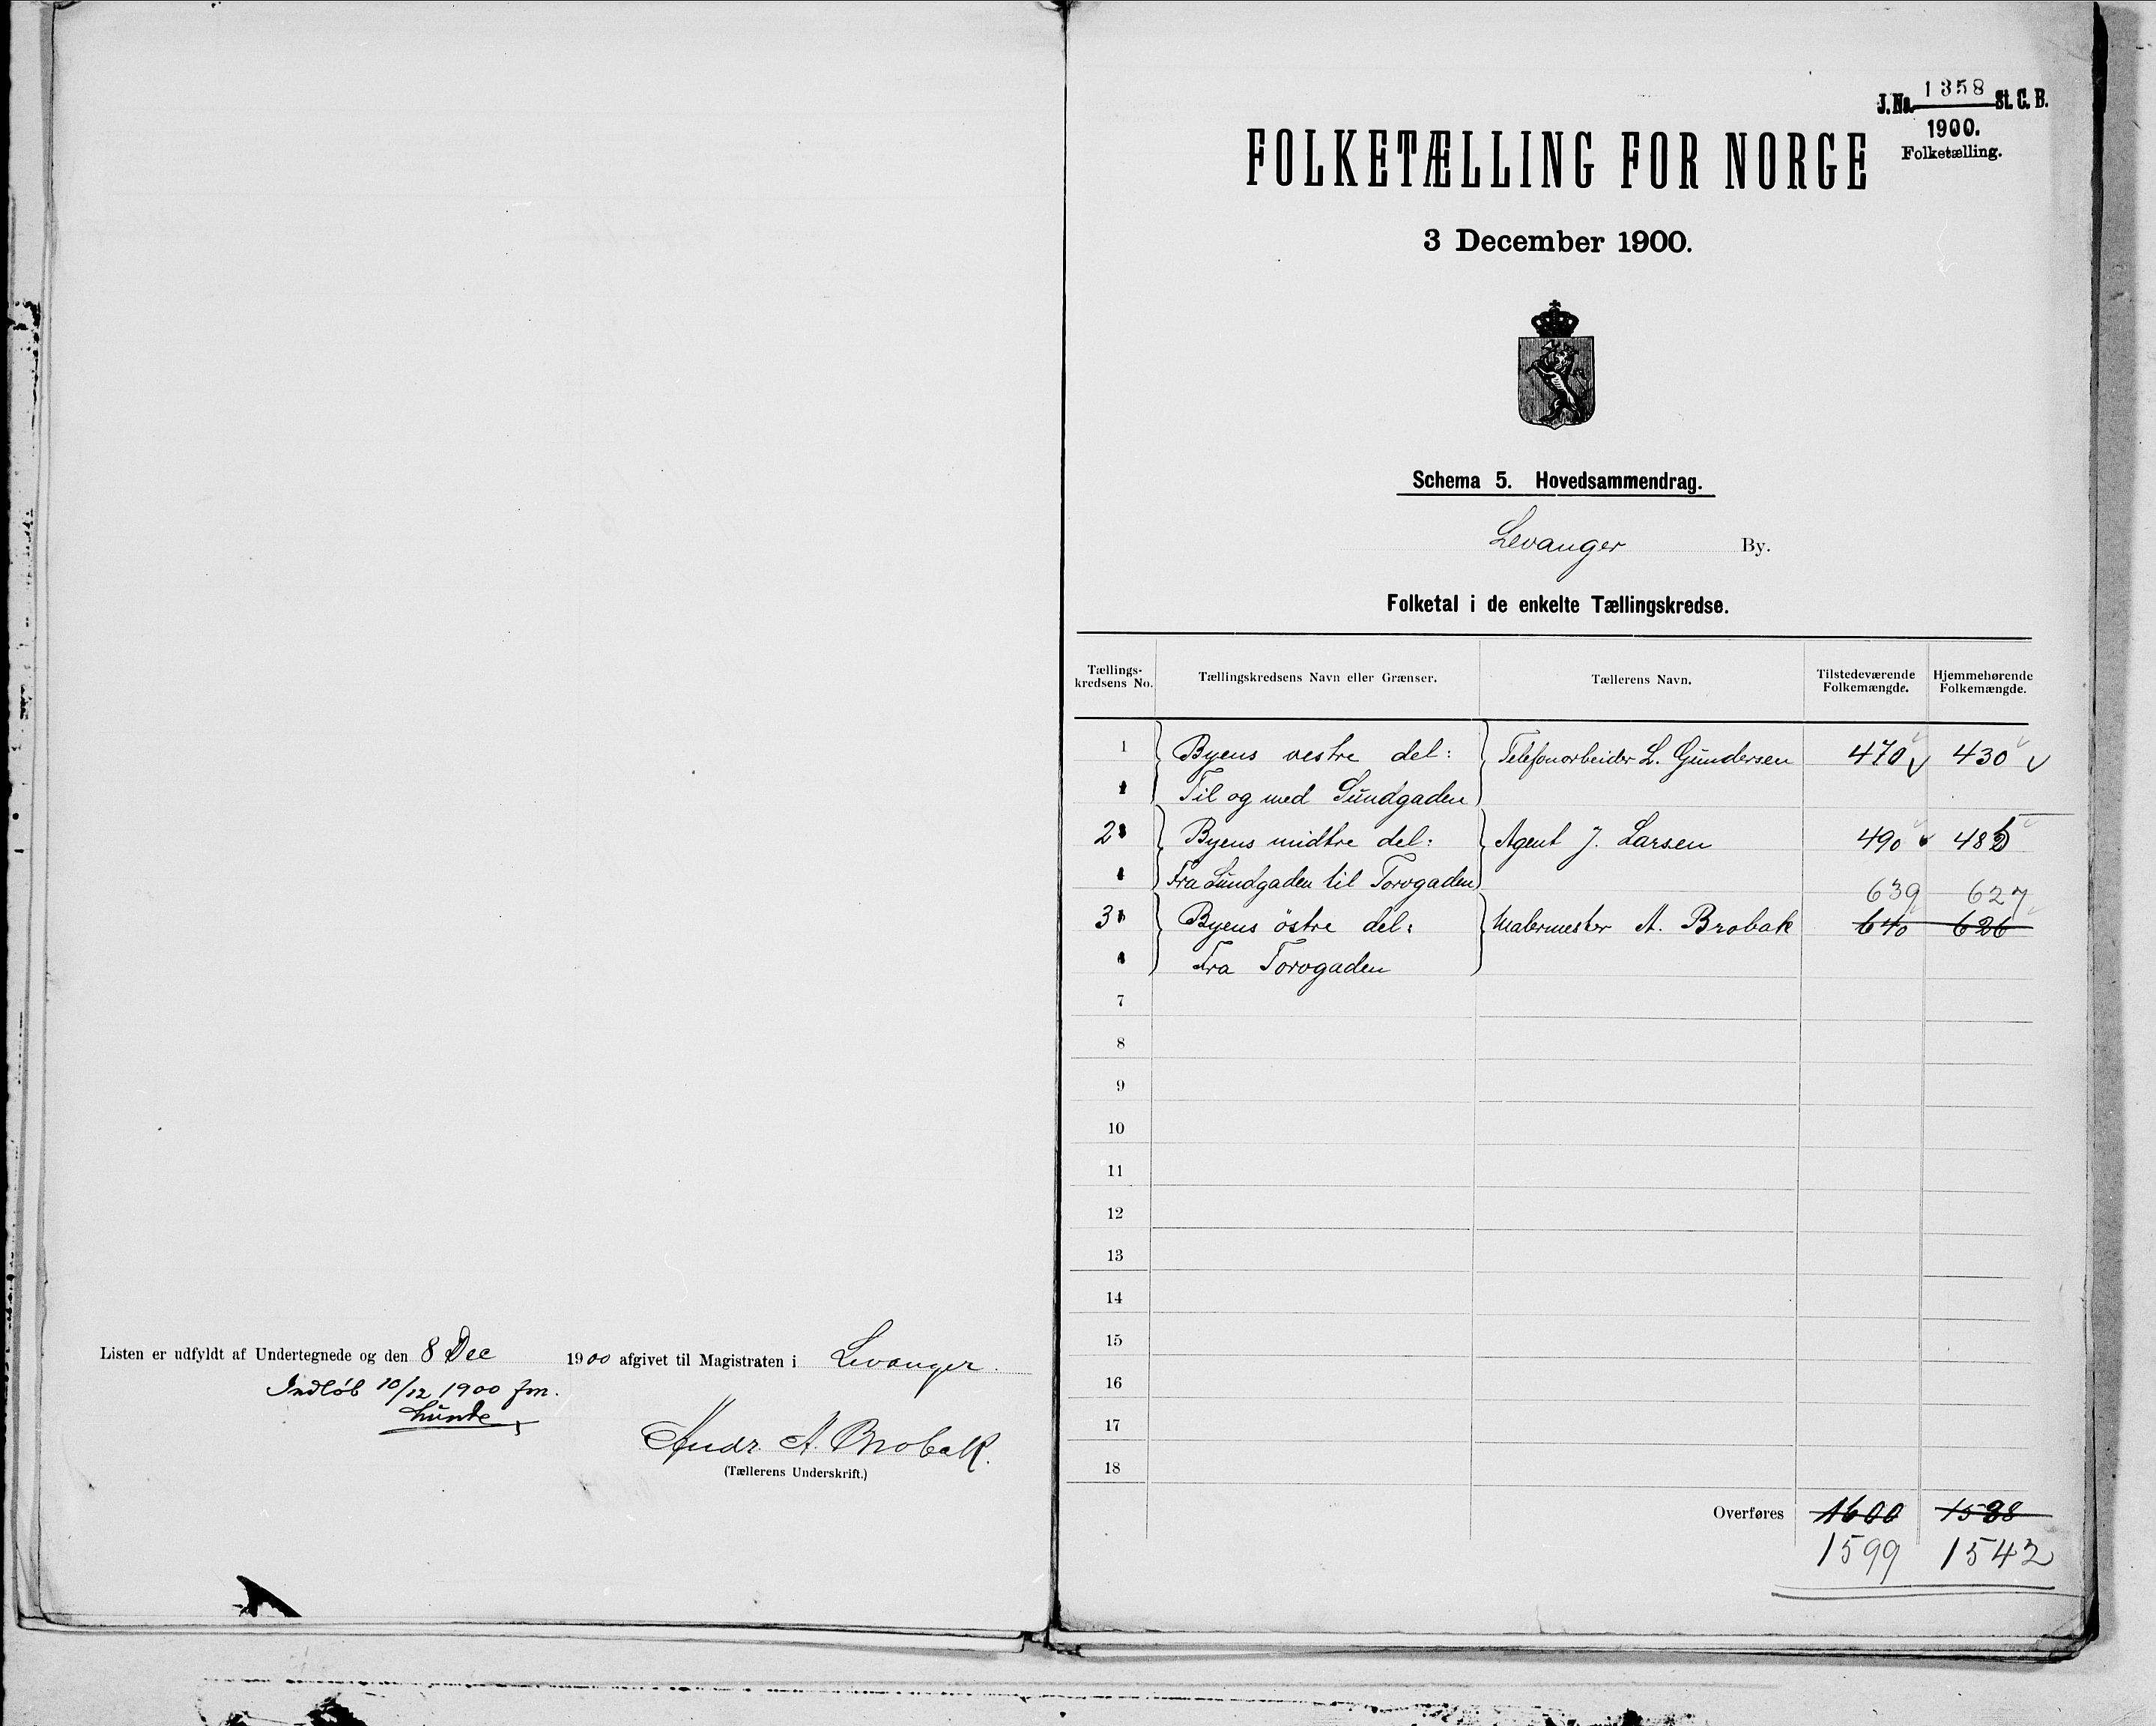 Listen er udfyldt af Undertegnede og den 8 Dec 1900 afgivet til Magistraten i Levanger.
Indløb 10/12 1900 fm.
Lunde
Andr. A. Brobak.
(Tællerens Underskrift.)
J. No. 1358 St. C. B.
1900.
Folketælling.
FOLKETÆLLING FOR NORGE
3 December 1900.
Schema 5. Hovedsammendrag.
Levanger By.
Folketal i de enkelte Tællingskredse.
Tællings-kredsens No. Tællingskredsens Navn eller Grænser. Tællerens Navn. Tilstedeværende Folkemængde. Hjemmehørende Folkemængde.
1 Byens vestre del: Telefonarbeider L. Gundersen 470 430
Til og med Sundgaden
2 Byens midtre del: Agent J. Larsen 490 485
Fra Sundgaden til Torvgaden
639 627
3 Byens östre del: Malermester A. Brobak 640 626
Fra Torvgaden
7
8
9
10
11
12
13
14
15
16
17
18
Overføres 1600
1599 1542